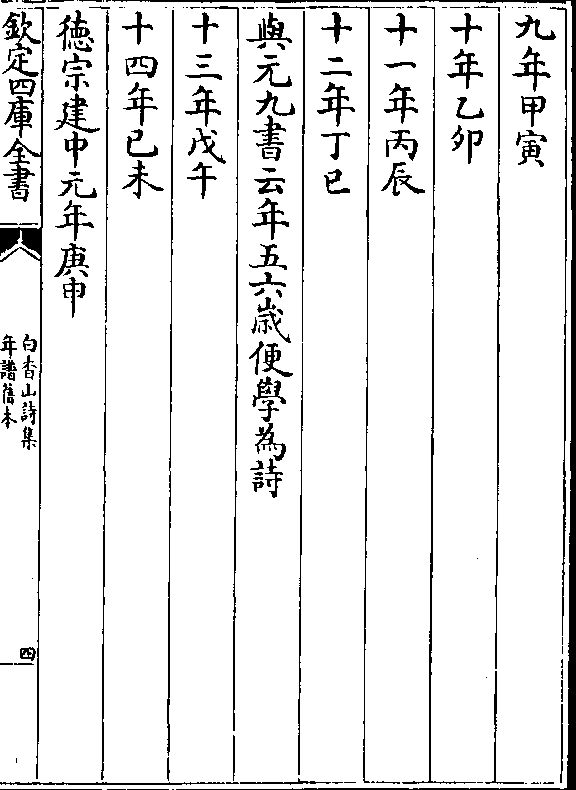 九年甲寅
十年乙夘
十一年丙辰
十二年丁巳
與元九書云年五六歲便學為詩
十三年戊午
十四年已未
德宗建中元年庚申
欽定四庫全書
白香山詩集
年譜舊本
四